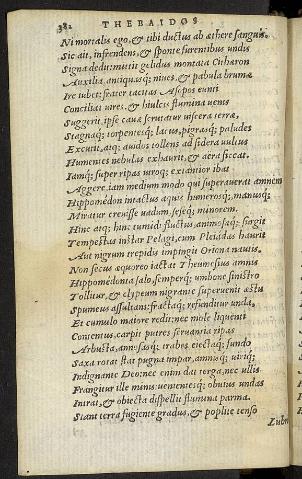 382 THEBAIDOS
Ni mortalis ego, & tibi ductus ab æthere sanguis.
Sic ait, infrendens, & sponte furentibus undis
Signa dedit: mittit gelidus montana Citharon
Auxilia, antiquasq; niues, & pabula brumæ
Ire iubet: frater tacitas Asopos eunti
Conciliat uires, & hiulcis flumina uenis
Suggerit, ipse cauæ scrutatur uiscera terræ,
Stagnaq; torpentesq; lacus, pigrasq; paludes
Excutit, atq; auidos tollens ad sidera uultus
Humentes nebulas exhaurit, & aera siccat.
Iamq; super ripas utroq; extantior ibat
Aggere. iam medium modo qui superauerat amnem
Hippomedon intactus aquis humerosq; manusq;
Miratur creuisse uadum, seseq; minorem.
Hinc atq; hinc tumidi fluctus, animosaq; surgit
Tempestas instar Pelagi, cum Pleiadas haurit
Aut nigrum trepidis impingit Oriona nautis.
Non secus æquoreo iactat Theumesius amnis
Hippomedonta salo, semperq; umbone sinistro
Tollitur, & clypeum nigrante superuenit æstu
Spumeus assultans: fractaq; refunditur unda,
Et cumulo maiore redit: nec mole liquenti
Contentus, carpit putres seruantia ripas
Arbusta, annosasq; trabes eiectaq; fundo
Saxa rotat stat pugna impar, amnisq; uiriq;
Indignante Deo: nec enim dat terga, nec ullis
Frangitur ille minis: uenientesq; obuius undas
Intrat, & obiecta dispellit flumina parma.
Stant terra fugiente gradus, & poplite tenso
Lubri